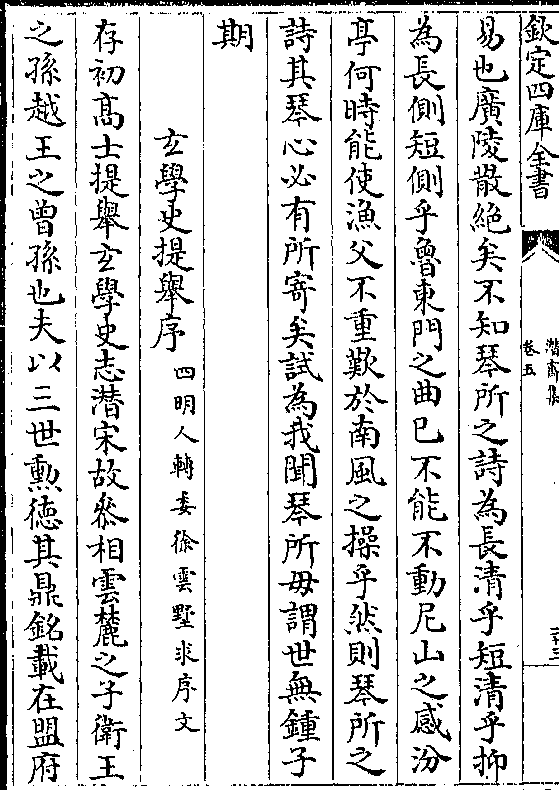 欽定四庫全書
潛齋集
卷五
易也廣陵散絶矣不知琴所之詩為長清乎短清乎抑
為長側短側乎魯東門之曲已不能不動尼山之感汾
亭何時能使漁父不重歎於南風之操乎然則琴所之
詩其琴心必有所寄矣試為我聞琴所毋謂世無鍾子
期
玄學史提舉序
四明人轉委徐雲墅求序文
存初髙士提舉玄學史志潛宋故叅相雲麓之子衛王
之孫越王之曾孫也夫以三世勲徳其鼎銘載在盟府